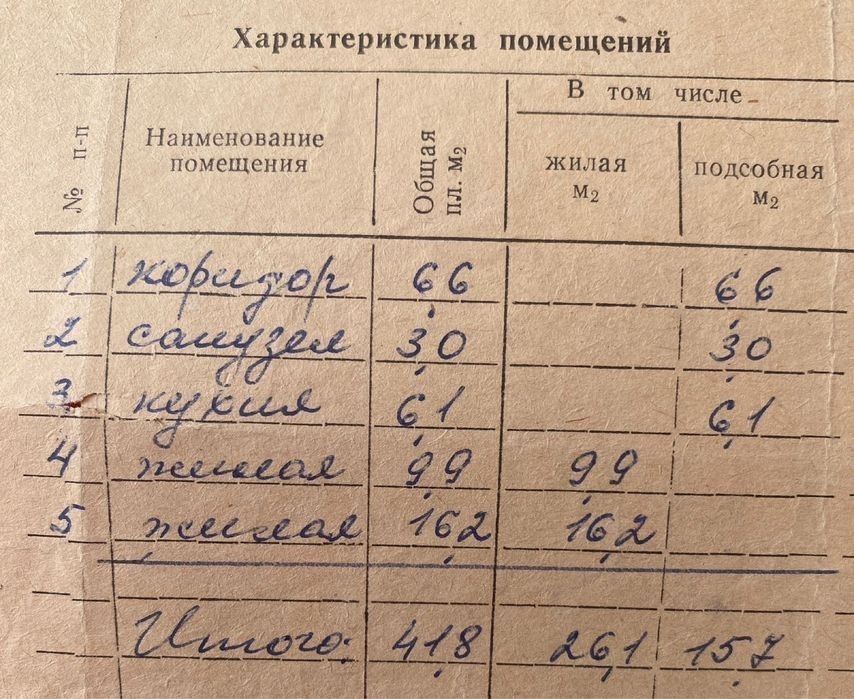 Характеристика помещений
№ п-п Наименование помещения Общая пл. м2 В том числе
жилая м2 подсобная м2
1 коридор 6,6 6,6
2 санузел 3,0 3,0
3 кухня 6,1 6,1
4 жилая 9,9 9,9
5 жилая 16,2 16,2
Итого: 41,8 26,1 15,7